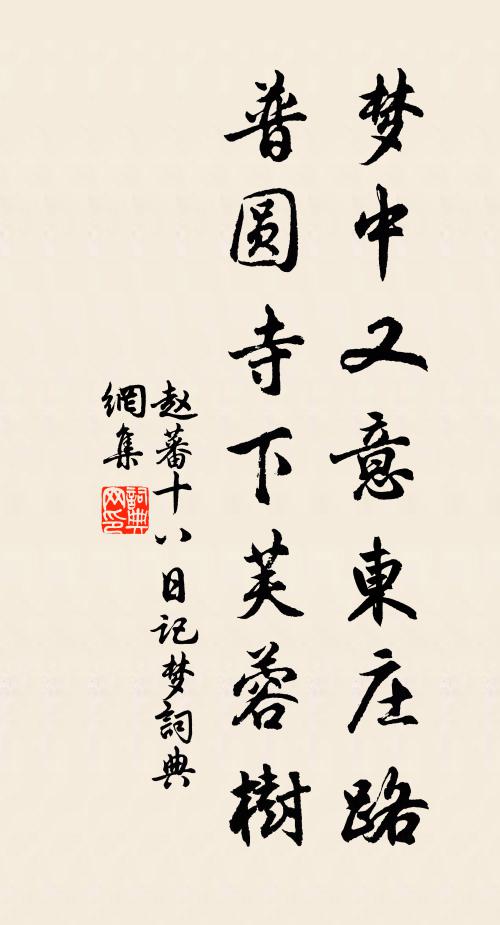 梦中又意東庄路
普圆寺下芙蓉樹
赵蕃十八日记梦詞典
網集
詞典网印